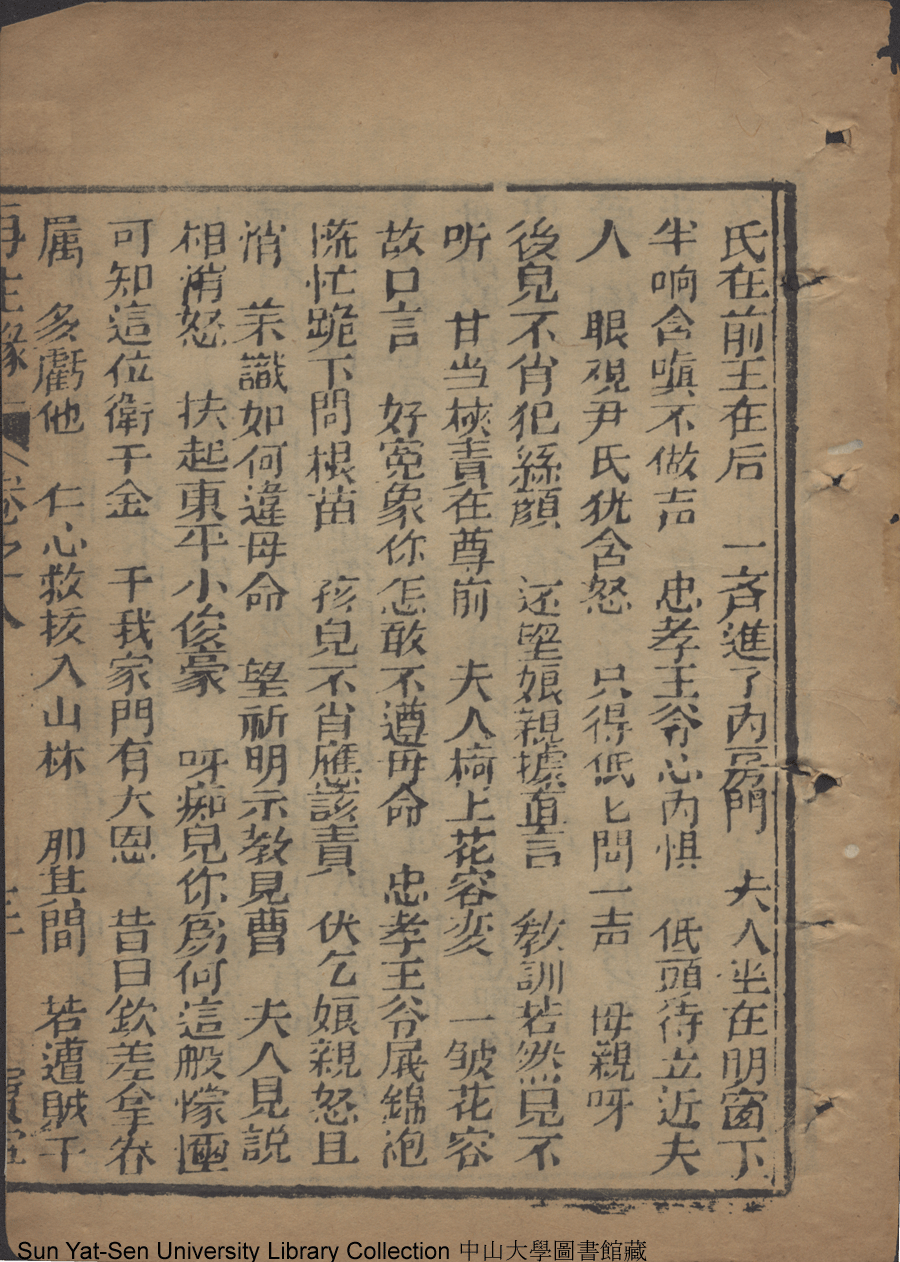 氏在前王在后　一斉進了内房門　夫人坐在明窗下
半响含嗔不做声　忠孝王爷心内惧　低頭待立近夫
人　眼視尹氏犹含怒　只得低匕問一声　母親呀
後児不肖犯慈顔　还望娘親據直言　教訓若然児不
听　甘当梜責在尊前　夫人椅上花容变　一皱花容
故口言　好冤象你怎敢不遵母命　忠孝王爷展綿袍
慌忙跪下問根苗　孩児不肖應該責　伏乞娘親怒且
消　未識如何違母命　望祈明示教児曹　夫人見説
稍消怒　扶起東平小俊豪　呀痴児你為何這般懞
可知這位衛千金　于我家門有大恩　昔日欽差拿眷
属　多虧他　仁心救拔入山林　那其間　若遭賊子
再生緣　卷之十八
Sun Yat-Sen University Library Collection 中山大學圖書館藏